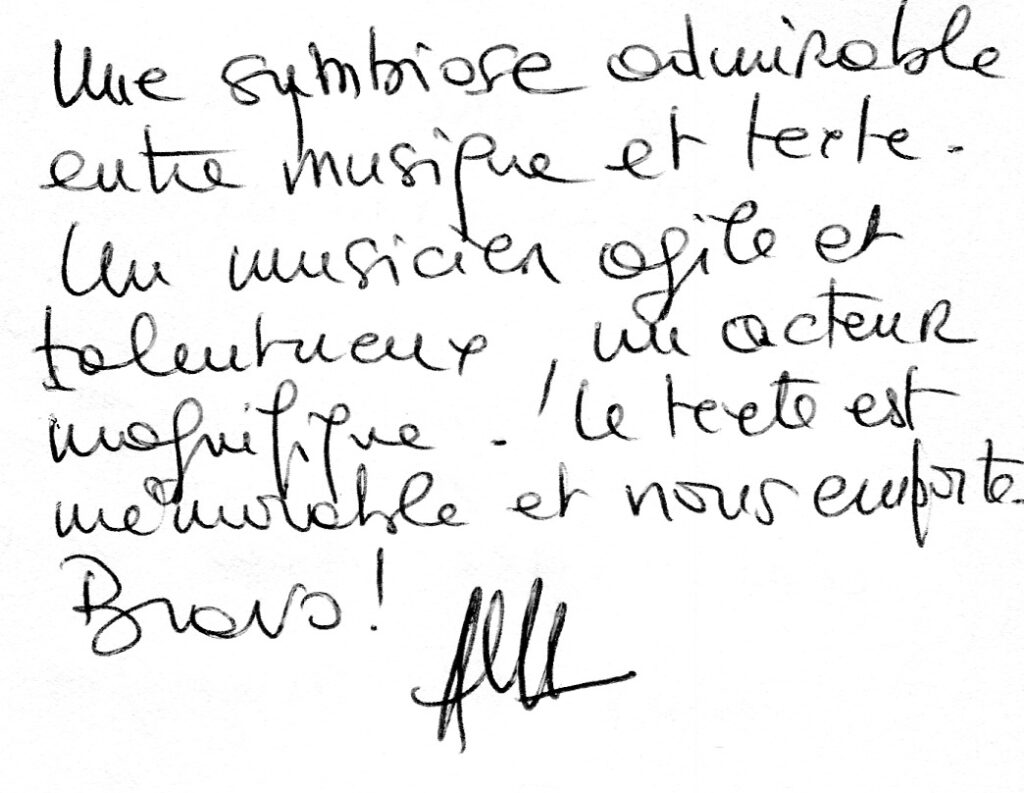 Une symbiose admirable
entre musique et texte.
Un musicien agile et
talentueux, un acteur
magnifique. Le texte est
mémorable et nous emporte.
Bravo!